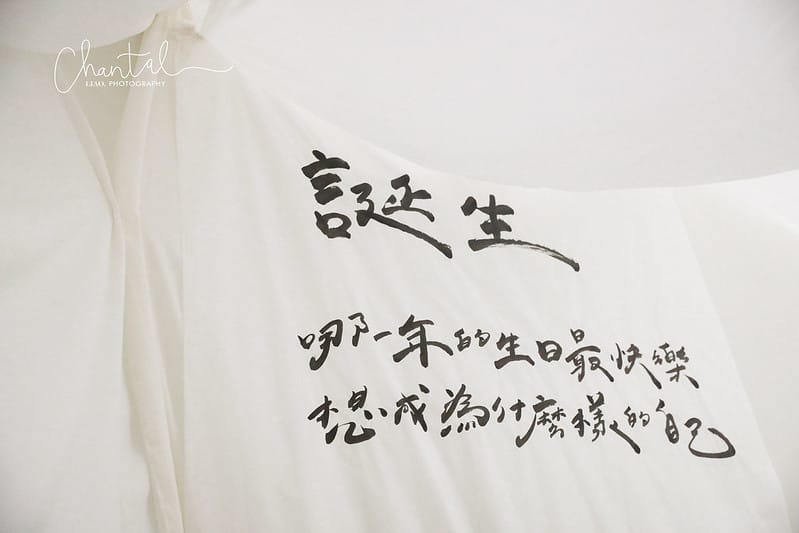 Chantal
PHOTOGRAPHY
誕生
哪一年的生日最快樂
想成為什麼樣的自己